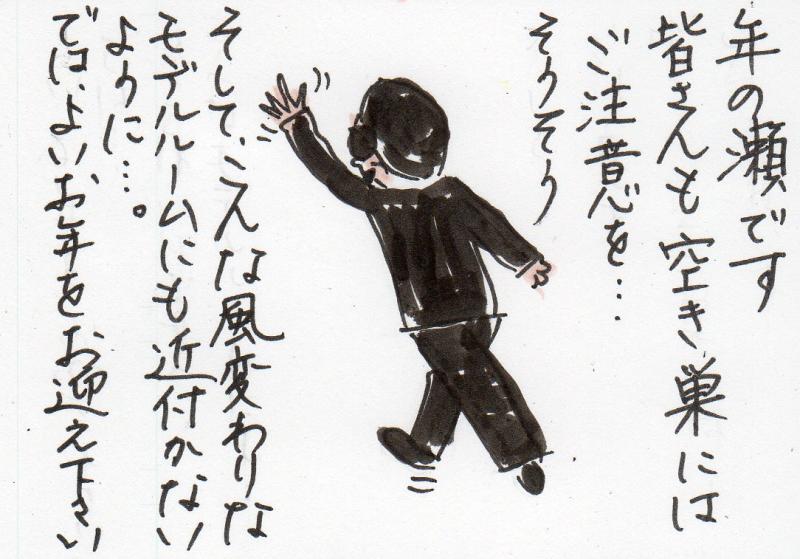 年の瀬です
皆さんも空き巣には
ご注意を…
そろそろ
そして、こんな風変わりな
モデルルームにも近付かない
ように…。
では、よいお年をお迎え下さい